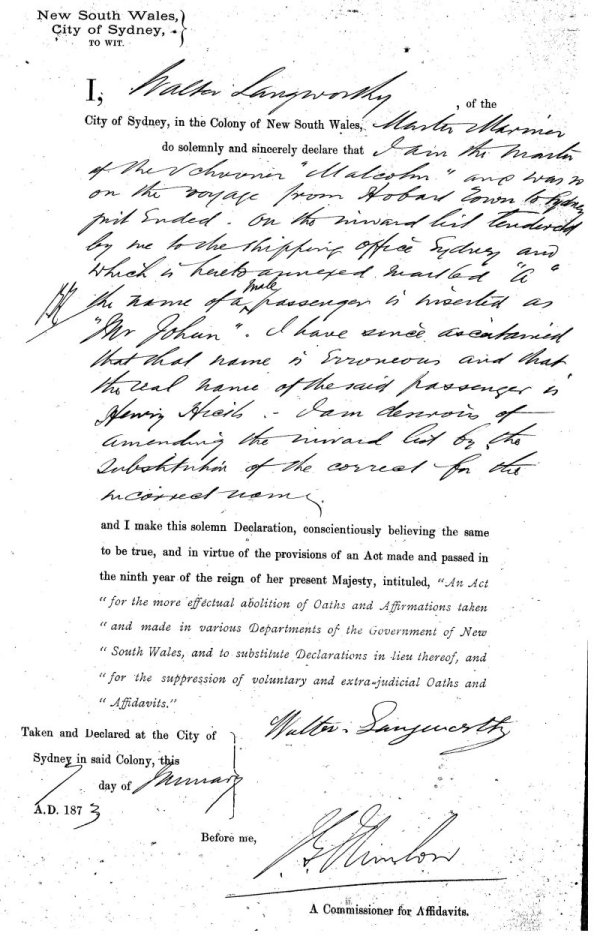 New South Wales,
City of Sydney,
TO WIT.
I, Walter Langworthy, of the
City of Sydney, in the Colony of New South Wales, Master Mariner
do solemnly and sincerely declare that I am the Master
of the Schooner "Malcolm" and was so
on the voyage from Hobart Town to Sydney
just Ended. On the inward list tendered
by me to the Shipping Office Sydney and
which is hereto annexed marked "A"
the name of a male passenger is inserted as
"Mr Johun". I have since ascertained
that that name is Erroneous and that
the real name of the said passenger is
Henry - I am desirous of
amending the inward list by the
Substitution of the correct for the
incorrect name,
and I make this solemn Declaration, conscientiously believing the same
to be true, and in virtue of the provisions of an Act made and passed in
the ninth year of the reign of her present Majesty, intituled, "An Act
"for the more effectual abolition of Oaths and Affirmations taken
"and made in various Departments of the Government of New
"South Wales, and to substitute Declarations in lieu thereof, and
"for the suppression of voluntary and extra-judicial Oaths and
"Affidavits."
Walter Langworthy
Taken and Declared at the City of
Sydney in said Colony, this
7 day of January
A.D. 1873
Before me,
A Commissioner for Affidavits.